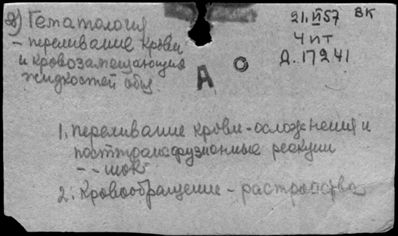 2) Гематология
- переливание крови
и кровозамещающих
жидкостей общ
21.VI 57 ВК
Чит
Д. 17241
А
1. переливание крови - осложнения и
посттрансфузионные реакции
- - шок
2. Кровообращение - расстройства